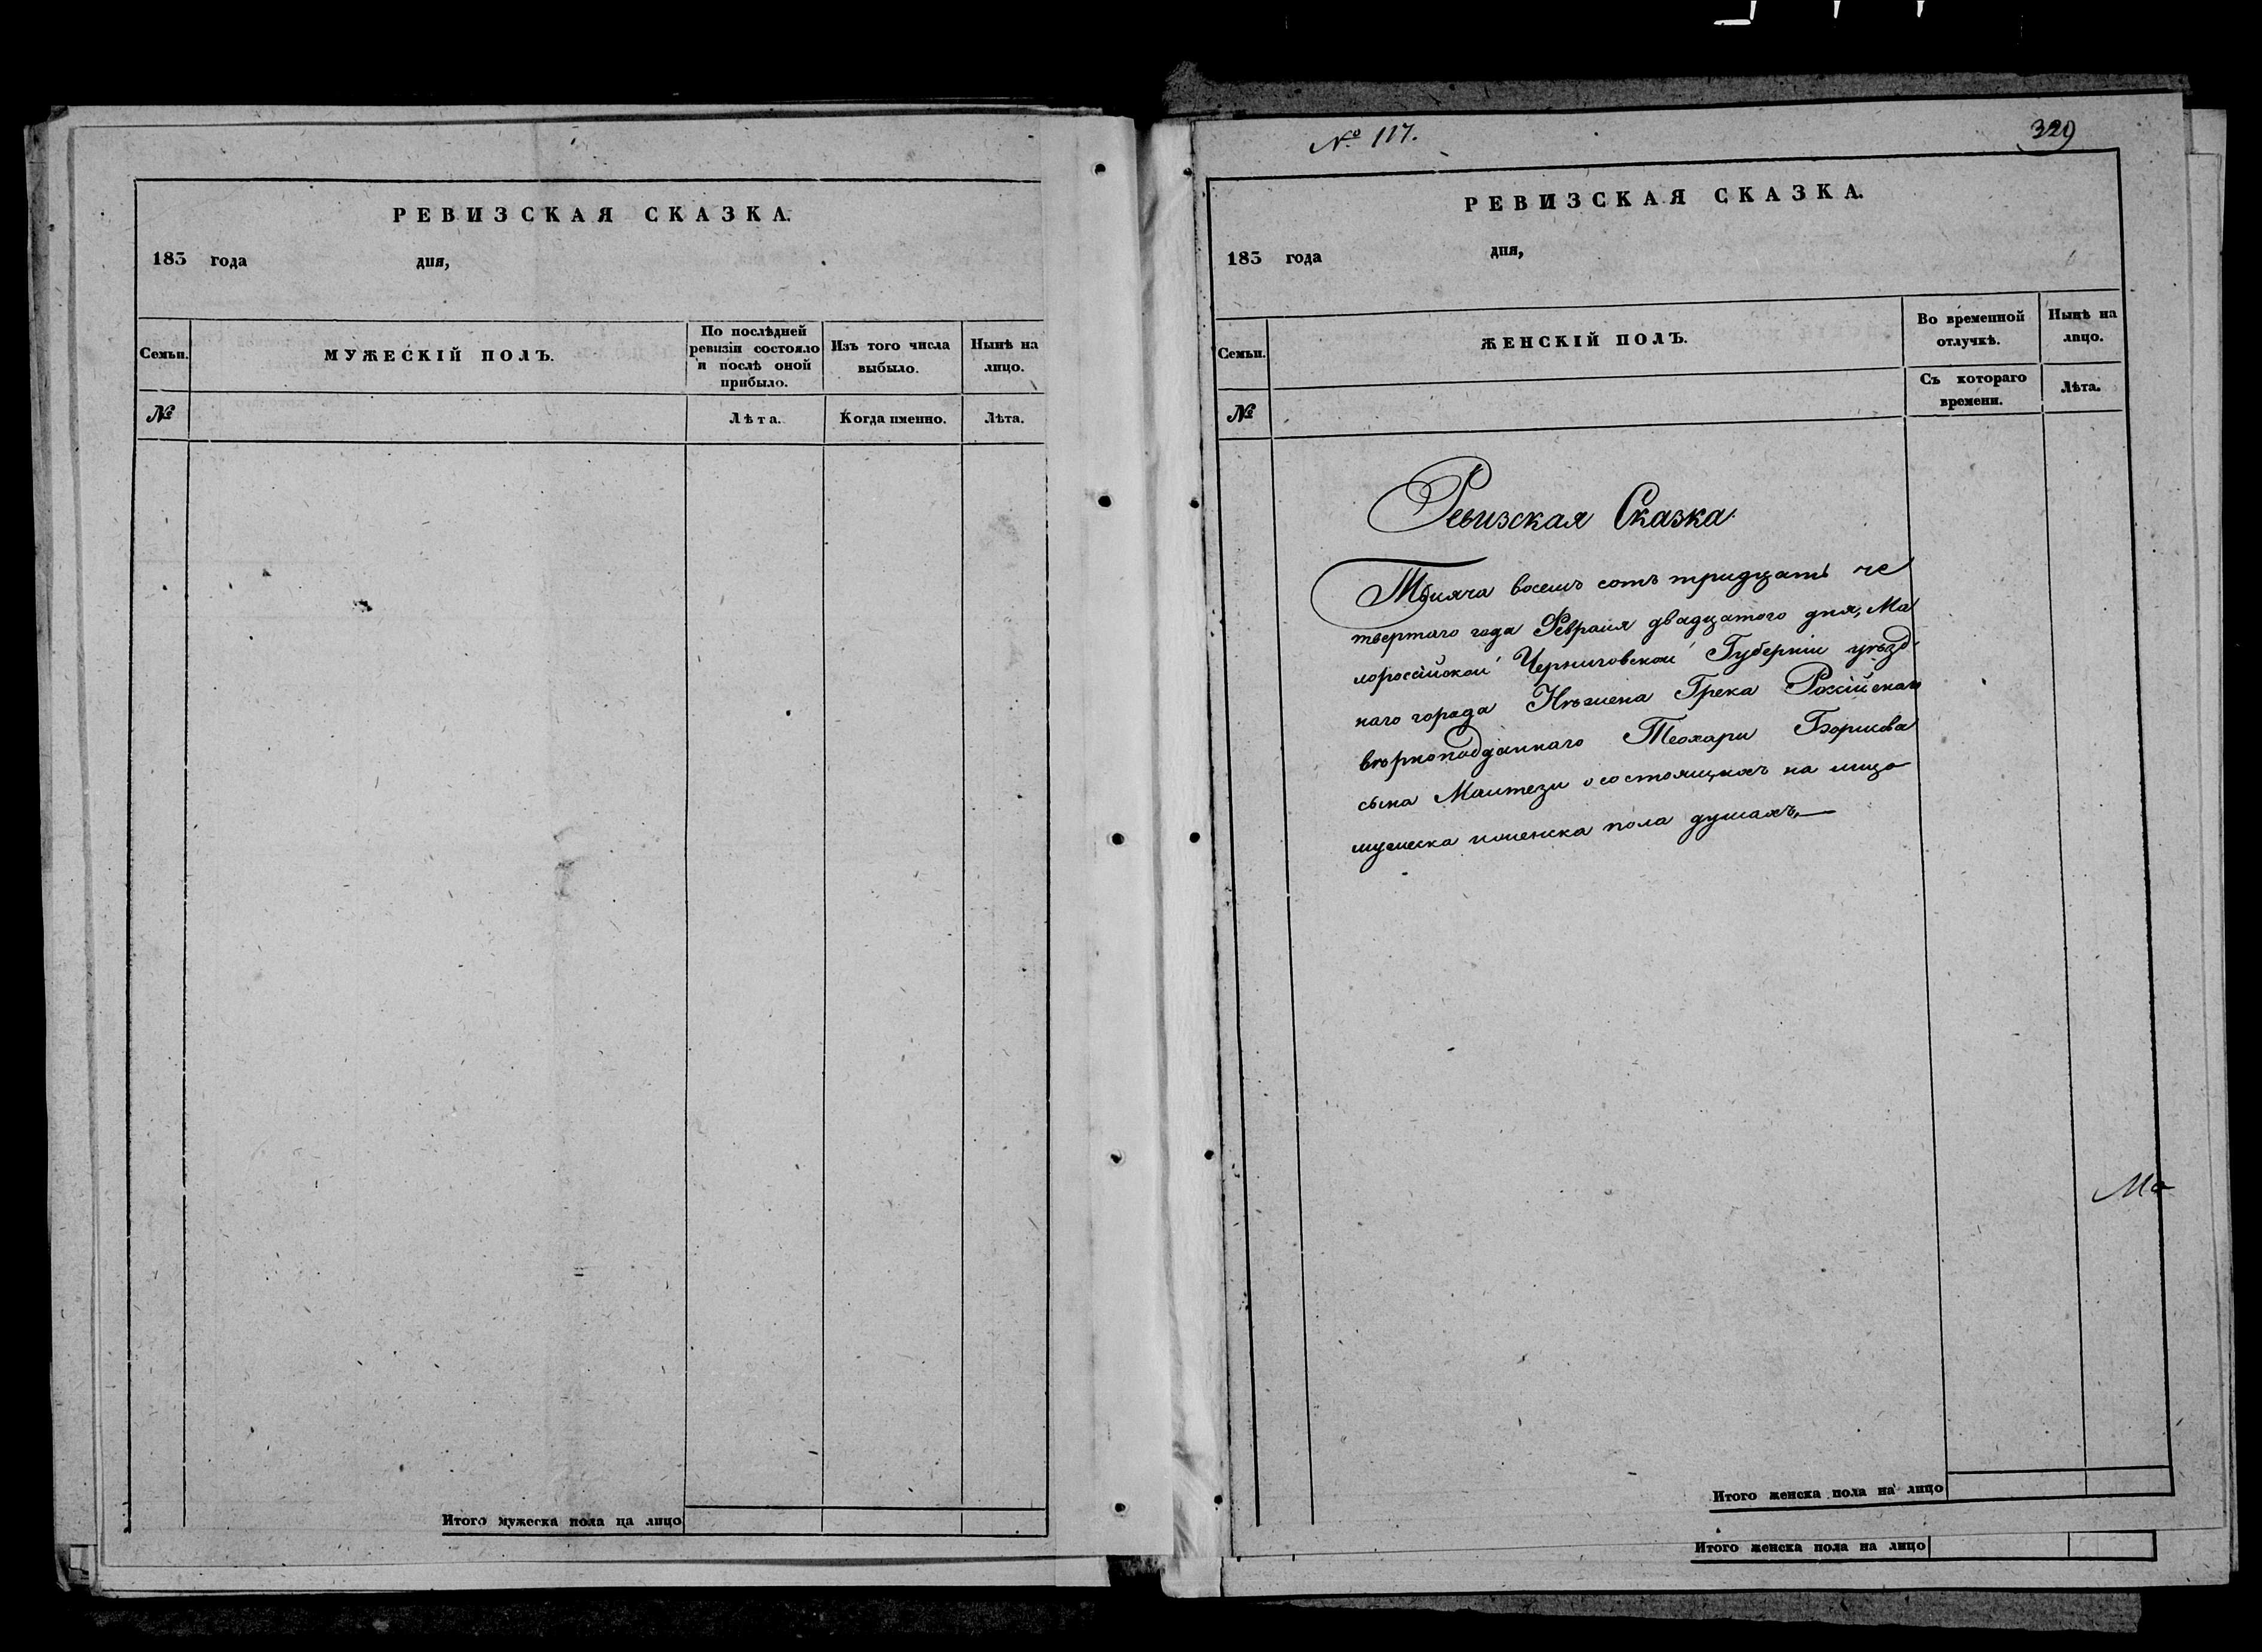 РЕВИЗСКАЯ СКАЗКА.
183 года дня,
Семьи.
МУЖЕСКІЙ ПОЛЪ.
По послѣдней ревизіи состояло и послѣ оной прибыло.
Изъ того числа выбыло.
Нынѣ на лицо.
№
Лѣта.
Когда именно.
Лѣта.
Итого мужеска пола на лицо
№ 117.
329
РЕВИЗСКАЯ СКАЗКА.
183 года дня,
Семьи.
ЖЕНСКІЙ ПОЛЪ.
Во временной отлучкѣ.
Нынѣ на лицо.
№
Съ котораго времени.
Лѣта.
Ревизская Сказка.
Тысяча восемь сотъ тридцать че
твертаго года Февраля двадцатого дня, Ма
лороссійской Черниговской Губерніи уѣзд
наго города Нѣжина Грека Россійскаго
вѣрноподданнаго Теохари Борисова
сына Мантези о состоящихъ на лицо
мужеска и женска пола душахъ,
Ма
Итого женска пола на лицо
Итого женска пола на лицо